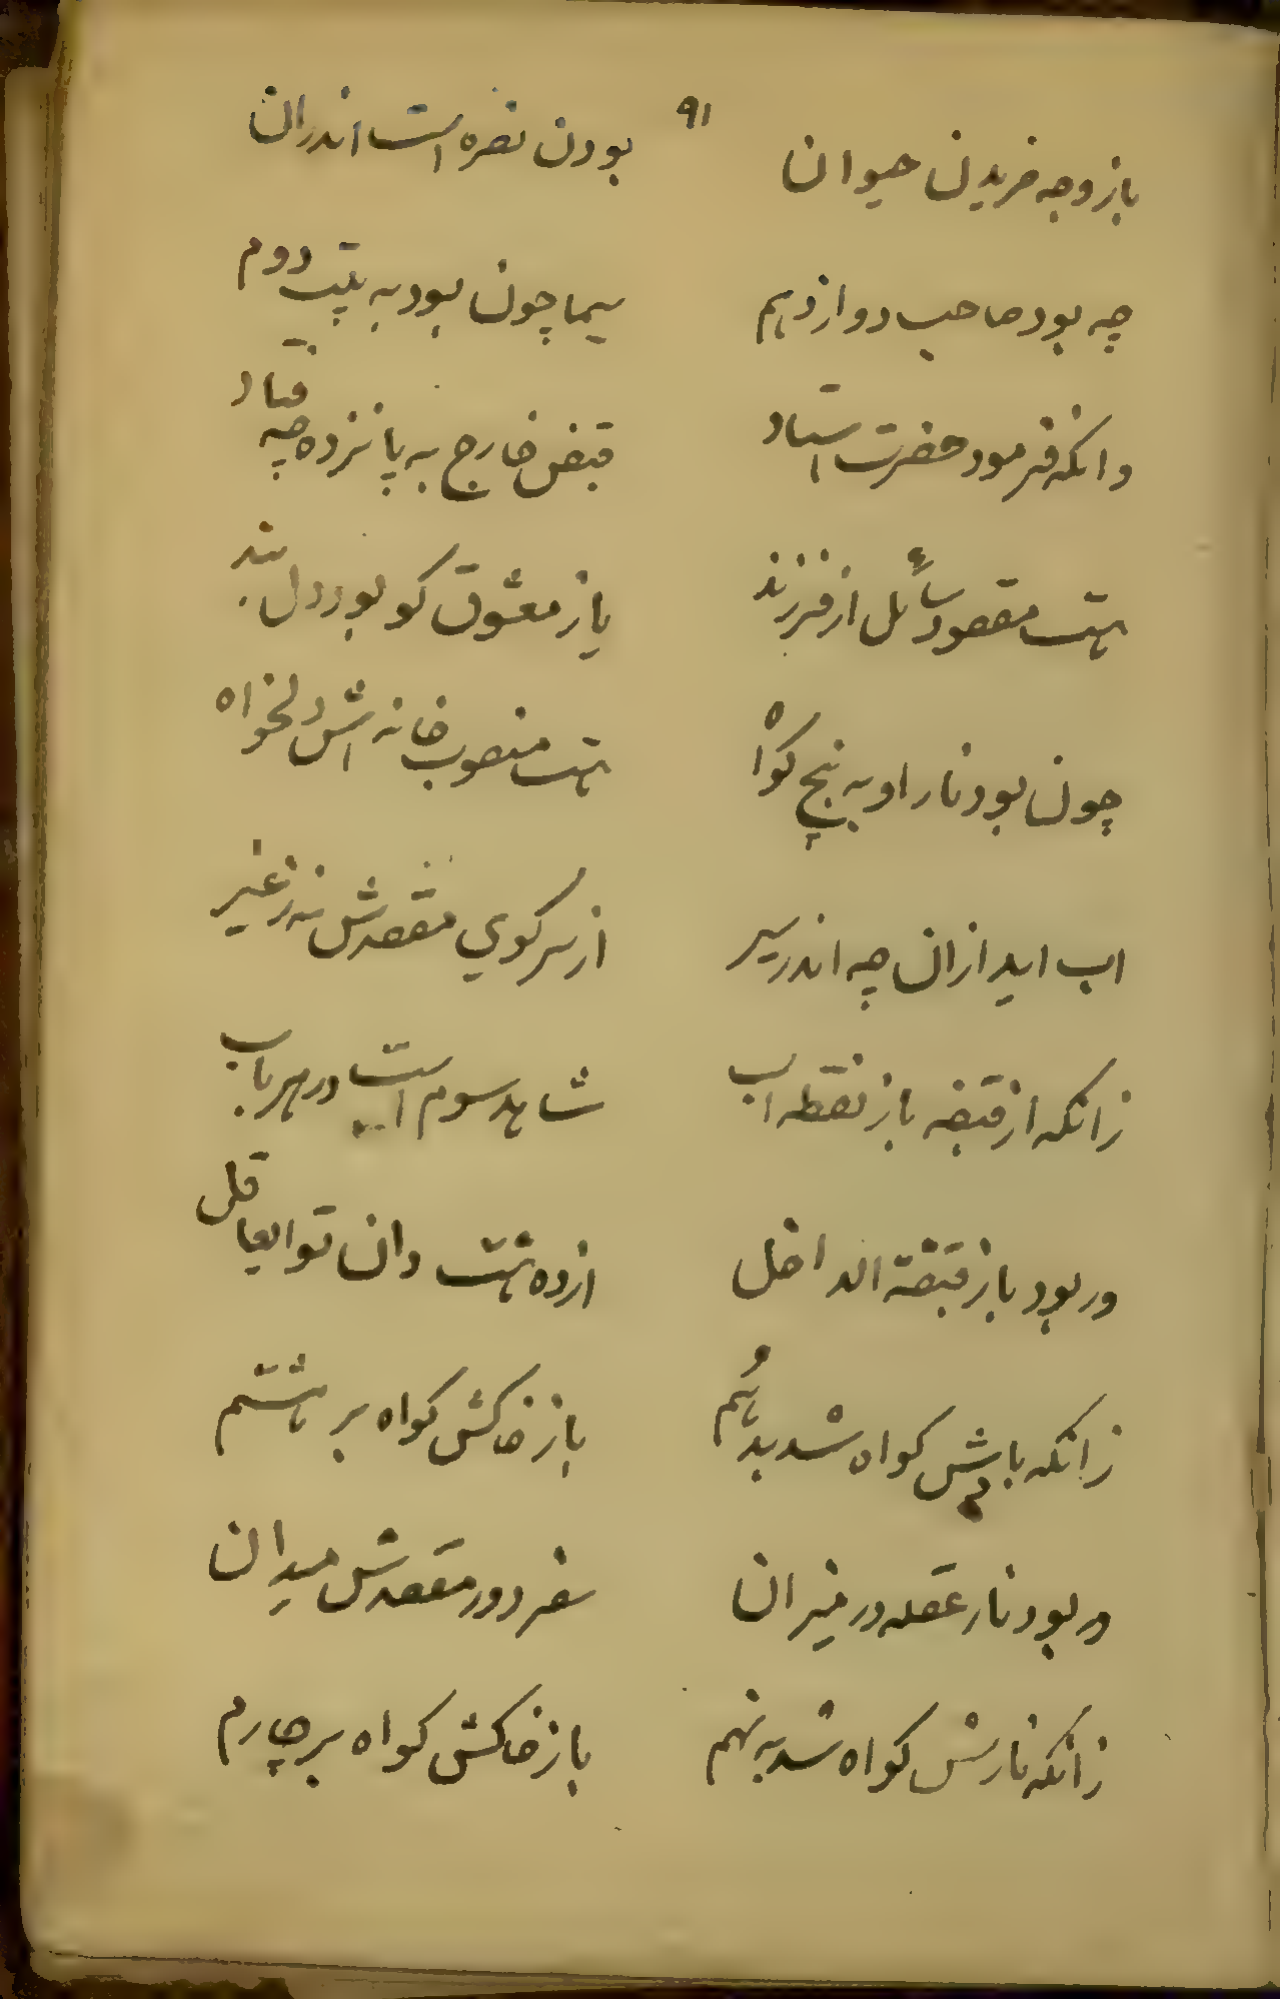 ۹۱
باز وجه خریدن حیوان بودن نصره است اندران
چه بود صاحب دوازدهم سیما چون بود به بیت دوم
وانکه فرمود حضرت استاد قبض خارج به پانزده چه فتاد
هست مقصود سائل از فرزند یا ز معشوق کو بود دل بند
چون بود نار او به پنج کواه هست منصوب خانه اش دلخواه
اب اید ازان چه اندر سیر از سر کوی مقصدش نه ز غیر
زانکه از قبضه باز نقطه اب شاهد سوم است در هر باب
ور بود باز قبضة الداخل از ده هشت دان تو ایعاقل
زانکه بادش کواه شد بدهم باز خاکش کواه بر هشتم
ور بود نار عقله در میزان سفر دور مقصدش میدان
زانکه نارش کواه شد به نهم باز خاکش کواه بر چارم